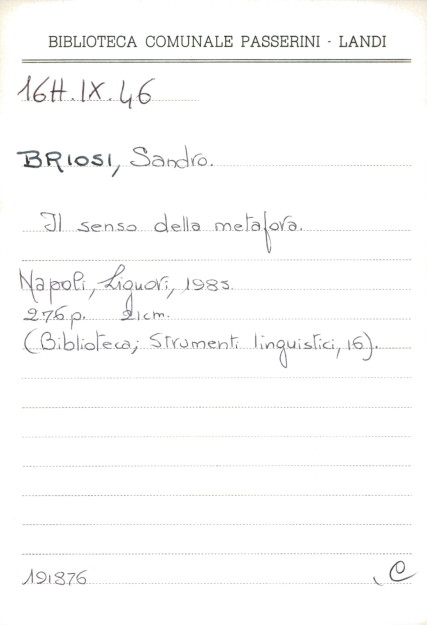 BIBLIOTECA COMUNALE PASSERINI - LANDI
16H.IX.46
BRIOSI, Sandro.
Il senso della metafora.
Napoli, Liguori, 1985.
276 p. 21cm.
(Biblioteca; Strumenti linguistici, 16).
191876 C